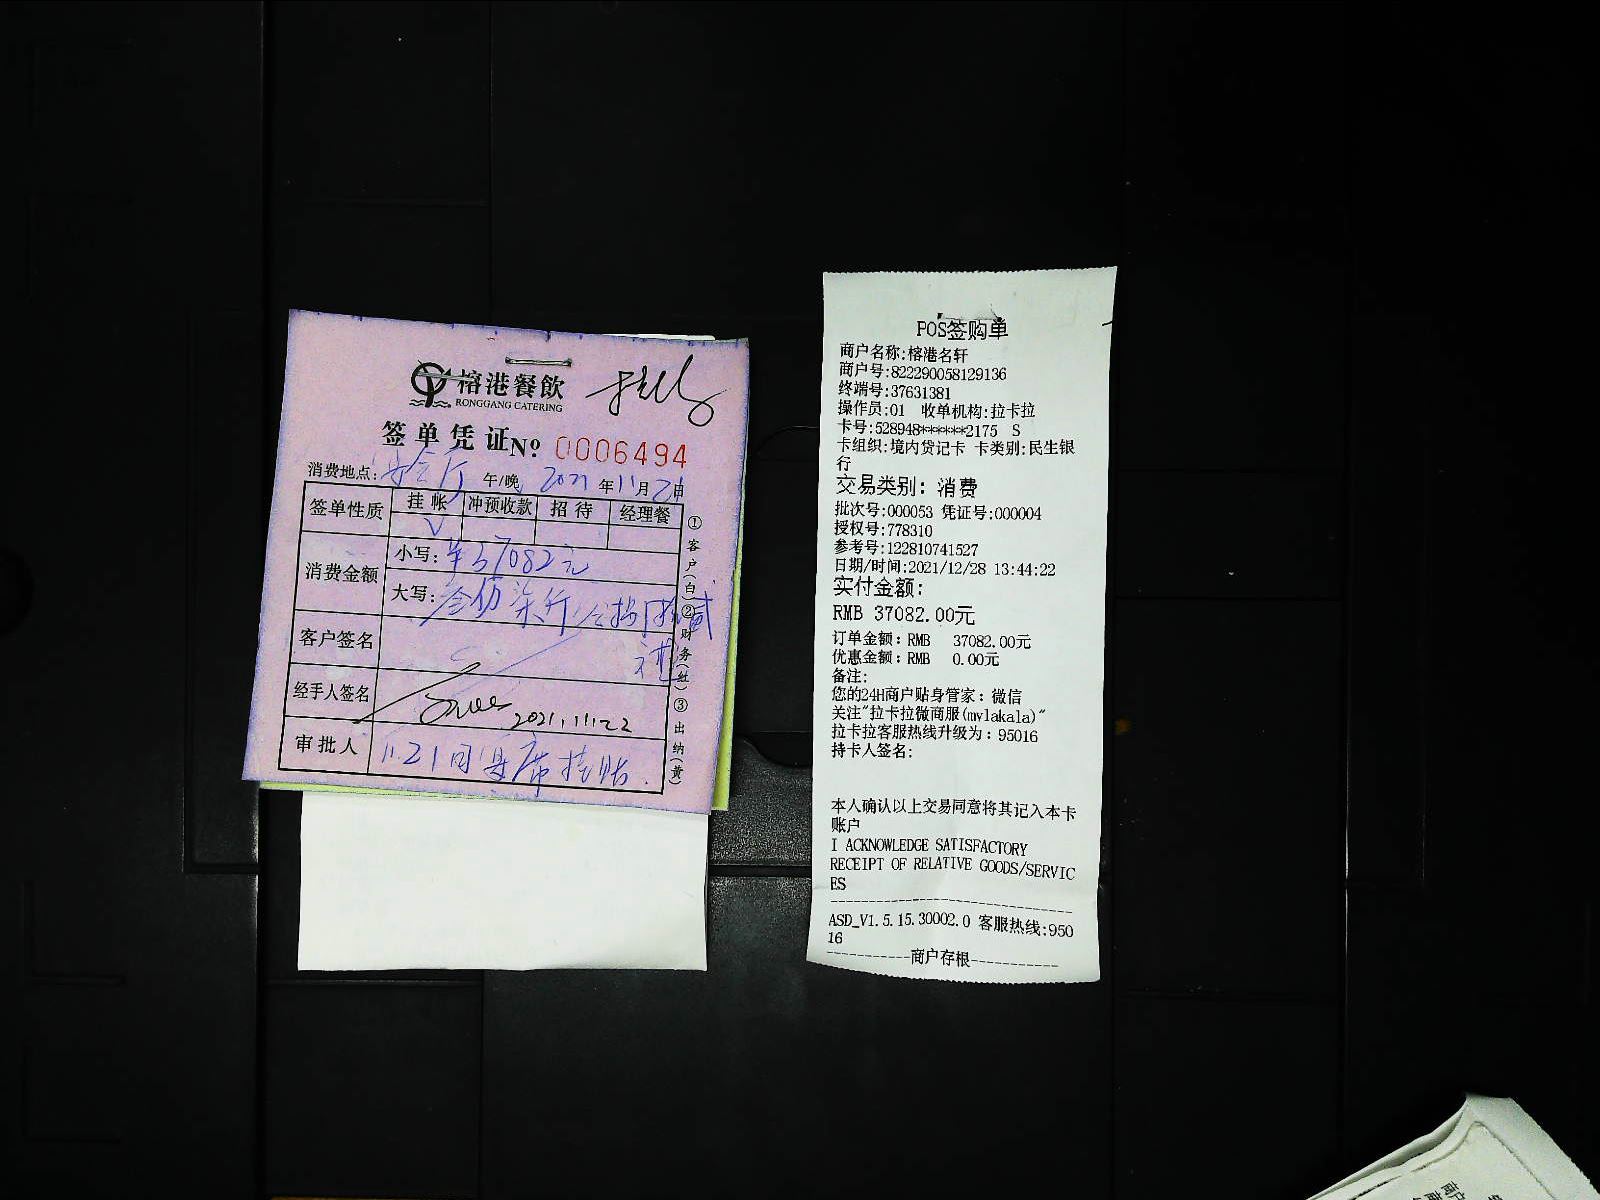 榕港餐飲
RONGGANG CATERING
签单凭证№ 0006494
消费地点: 宴会厅 午/晚 2021年11月21日
签单性质 挂帐 冲预收款 招待 经理餐
√
消费金额
小写: ¥37082元
大写: 叁万柒仟零捌拾贰元
客户签名
经手人签名
2021.11.22
审批人 11.21日宴席挂账.
①客户(白)②财务(红)③出纳(黄)
POS签购单
商户名称:榕港名轩
商户号:822290058129136
终端号:37631381
操作员:01 收单机构:拉卡拉
卡号:528948******2175 S
卡组织:境内贷记卡 卡类别:民生银
行
交易类别: 消费
批次号:000053 凭证号:000004
授权号:778310
参考号:122810741527
日期/时间:2021/12/28 13:44:22
实付金额:
RMB 37082.00元
订单金额: RMB 37082.00元
优惠金额: RMB 0.00元
备注:
您的24H商户贴身管家: 微信
关注"拉卡拉微商服(mvlakala)"
拉卡拉客服热线升级为: 95016
持卡人签名:
本人确认以上交易同意将其记入本卡
账户
I ACKNOWLEDGE SATISFACTORY
RECEIPT OF RELATIVE GOODS/SERVIC
ES
ASD_V1.5.15.30002.0 客服热线:950
16
-----------商户存根-----------